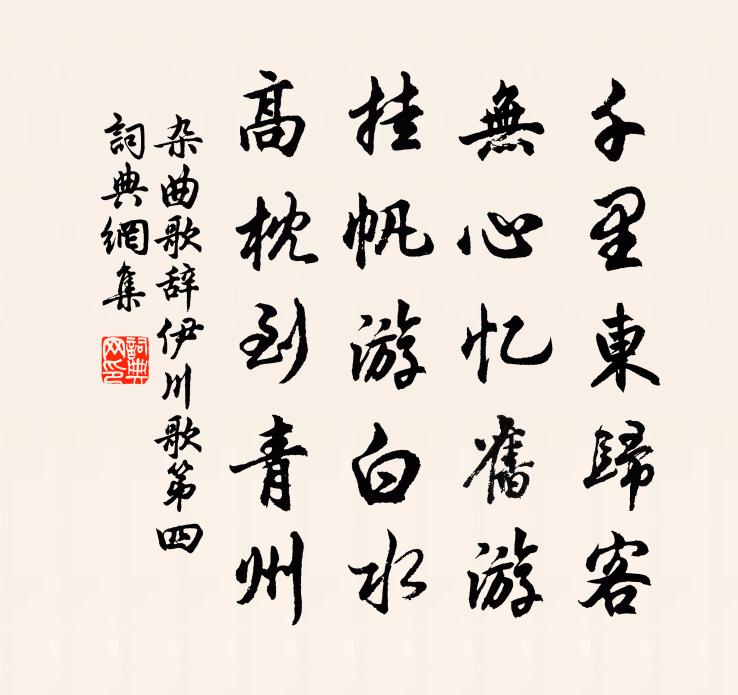 千里東歸客
無心忆舊游
挂帆游白水
高枕到青州
杂曲歌辞伊川歌第四
詞典網集
詞典网印